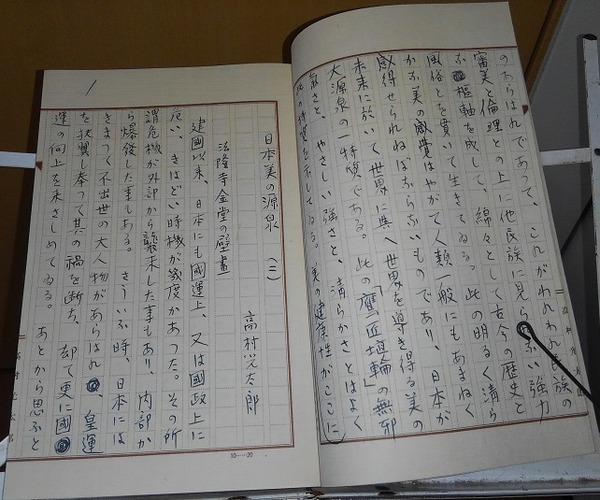 のあらはれであつて、これがわれわれ民族の
審美と倫理との上に他民族に見らない強力
な枢軸を成して、綿々として古今の歴史と
風俗とを貫いて生きてゐる。此の明るく清ら
かな美の感覺はやがて人類一般にもあまねく
感得せられねばならないものであり、日本が
未来に於いて世界に與へ世界を導き得る美の
大源泉の一特質である。此の「鷹匠埴輪」の無邪
氣さと、やさしい強さと、清らかさとはよく
此の特質を示してゐる。美の健康性がここに
日本美の源泉 (二)
高村光太郎
法隆寺金堂の壁畫
建國以来、日本にも國運上、又は國政上に
危い、きはどい時機が幾度かあつた。その所
謂危機が外部から襲来した事もあり、内部か
ら爆發した事もある。さういふ時、日本には
きまつて不出世の大人物があらはれ、皇運
を扶翼し奉つて其の禍を断ち、却て更に國
運の向上を来さしめてゐる。あとから思ふと
10—20